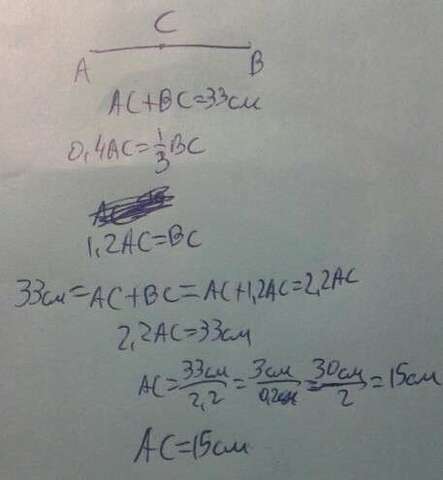 C
A B
AC+BC=33см
0,4AC=1/3BC
1,2AC=BC
33см=AC+BC=AC+1,2AC=2,2AC
2,2AC=33см
AC=33см/2,2=3см/0,2=30см/2=15см
AC=15см